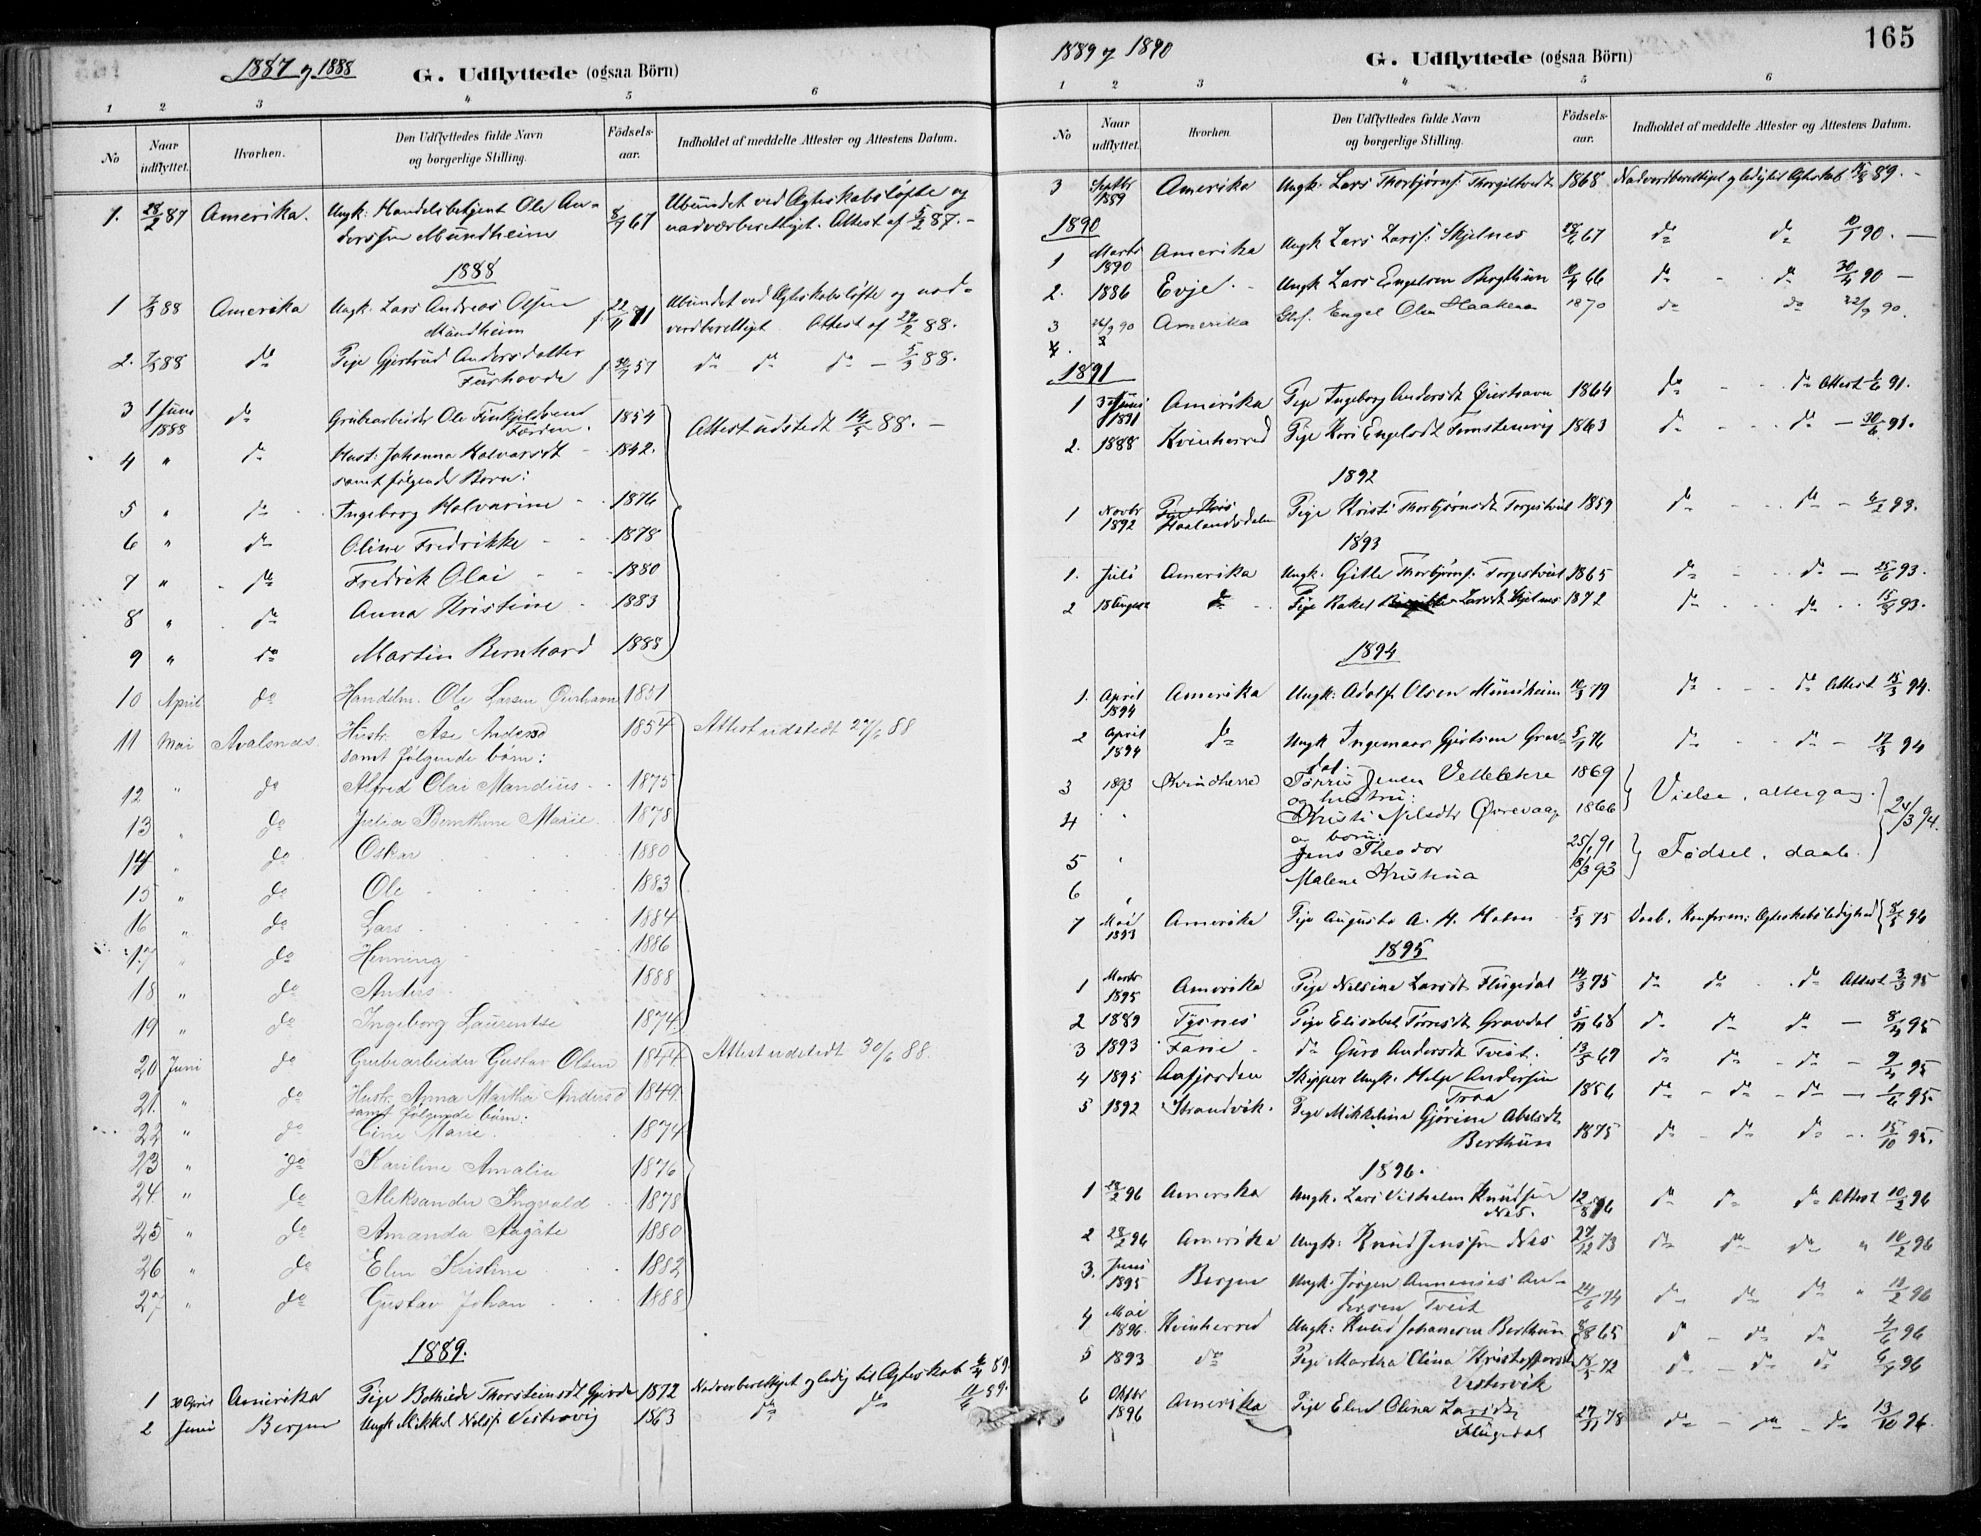 1887 og 1888
G. Udflyttede (ogsaa Börn)
1 2 3 4 5 6
No
Naar udflyttet.
Hvorhen.
Den Udflyttedes fulde Navn og borgerlige Stilling.
Födsels-aar.
Indholdet af meddelte Attester og Attestens Datum.
1. 28/2 87 Amerika. Ungk. Handelsbetjent Ole An- 8/9 67 Ubundet ved Ægteskabsløfte og
derssen Mundheim nadverberettiget. Attest af 5/2 87. -
1888
1 7/3 88 Amerika Ungk. Lars Andreas Olsen f. 22/11 71 Ubundet ved Ægteskabsløfte og nad-
Mundheim verdberettiget. Attest af 29/2 88.
2. 7/3 88 do Pige Gjertrud Andersdatter f 30/7 57 do do do - 5/3 88.
Furhovde
3 1 Juni 1888 do Grubearbeider Ole 1854 Attest udstedt 14/5 88. -
4 " do Hust. Johanna Halvarsdt - 1842.
samt følgende Børn:
5 " do Ingeborg Halvarine - 1876
6 " do Oline Fredrikke - - 1878
7 " do Fredrik Olai - - 1880
8 " do Anna Kristine - 1883
9 " do Martin Bernhard 1888
10 April do Handelm. Ole Larsen Øierhavn 1851
11 Mai Avalsnes Hustr. Ase Andersd 1854 Attest udstedt 27/4 88
samt følgende børn:
12 " do Alfred Olai Mandius 1875
13 " do Julia Bernthine Marie 1878
14 " do Oskar 1880
15 " do Ole 1883
16 " do Lars 1884
17 " do Henning 1886
18 " do Anders 1888
19 " do Ingeborg Laurentse 1874
20 Juni do Grubearbeider Gustav Olsen 1844 Attest udstedt 30/6 88.
21. " do Hustr. Anna Martha Andersd 1849.
samt følgende børn:
22 " do Line Marie 1874
23 " do Kariline Amalia 1876
24 " do Aleksander Ingvald 1878
25 " do Amanda Aagate 1880
26 " do Elen Kristine 1882
27 " do Gustav Johan 1888
1889.
1 30 April Amerika Pige Bothilde Thorsteinsdt Gjerde 1872 Nadverberettiget og ledig til Ægteskab 6/4 89.
2 Juni Bergen Ungk Mikkel Nelsf. Vestervig 1863 do do 11/6 89.
165
1889 og 1890
G. Udflyttede (ogsaa Börn)
1 2 3 4 5 6
No
Naar udflyttet.
Hvorhen.
Den Udflyttedes fulde Navn og borgerlige Stilling.
Födsels-aar.
Indholdet af meddelte Attester og Attestens Datum.
3 Septbr 1889 Amerika Ungk. Lars Thorbjørns. 1868 Nadverdberettiget og ledig til Ægteskab 89. -
1890
1 Marts 1890 Amerika Ungk Lars Larsf. Skjelnes 67 do do 10/1 90. -
2. 1886 Evje. - Ungk Lars Engelsen Bergthun 66 do - do 30/4 90 -
3 26/9 90 Amerika Engel Olsn Haakenæs 1870 do do 22/9 90.
1891
1 Juni 1891 Amerika Pige Ingeborg Andersdt Øierhavn 1864 do - - do Attest 1/6 91.
2. 1888 Kvinherred Pige Kari Engelsdt 1863 do - - do - 30/6 91.
1892
1 Novbr 1892 Haalandsdalen Pige Kristi Thorbjørnsdt Torpetveit 1859 do - - do - 6/2 93.
1893
1. Juli Amerika Ungk. Gitle Thorbjørnsf. Torpetveit 1865 do - - do - 25/6 93.
2 18 August do Pige Rakel Larsdt Skjelnes 1872 do - - do - 15/8 93.
1894
1. April 1894 Amerika Ungk: Adolf Olsen Mundheim 79 do - - do Attest 15/3 94.
2 April 1894 do Ungk Ingemaar Gjertsen Grav- 5/1 76 do - - do - 17/3 94
dal.
3 1893 Kvindherre Tørris Jensen Velleletere 1869 Vielse, altergang.
og hustru:
4 " Kristi Nilsdtr Øvrevaage 1866 24/3 94.
og børn:
5 " Jens Theodor 25/1 91 Fødsel, daab.
6 " Malene Kristina 18/3 93
7 Mai 1893 Amerika Pige Augusta A. H. Holm 5/3 75 Daab, Konfirm: Ægteskabsledighed 8/5 94
1895
1 Marts 1895 Amerika Pige Nelsina Larsdt Flugedal 14/3 75 do do do Attest 3/3 95
2 1889 Tysnes Pige Elisabet Tørresdt Gravdal 68 do do do - 8/4 95
3 1893 Farie - do Guro Andersdt Tveit. 13/5 69 do do - do - 9/4 95
4 1895 Aafjorden Skipper Ungk. Helje Andersen 1856 do - do - do - 1/6 95.
Traa
5 1892 Strandvik. Pige Mikkeline Gjørine Abelsdt 1875 do - do do - 15/10 95.
Berthun
1896.
1 28/2 96 Amerika Ungk. Lars Vilhelm Knudsen 12/8 76 do do do Attest 10/2 96
Nes.
2 28/2 96 Amerika Ungk: Knud Jenssen Nes 27/12 73 do do do " 10/2 96
3. Juni 1895 Bergen Ungk. Jørgen Annanias An- 24/6 74 do do do " 10/2 96
dersen Tveit
4 Mai 1896. Kvinherred Ungk: Knud Johannesen Berthun 8/8 65 do - do do 4/6 96
5 1893 do Pige Martha Olina Kristoffersdt 73 do - do do 6/7 96
Vestervik
6 Oktbr 1896 Amerika Pige Elen Olina Larsdtr 27/11 78 do - do - do 13/10 96.
Flugedal